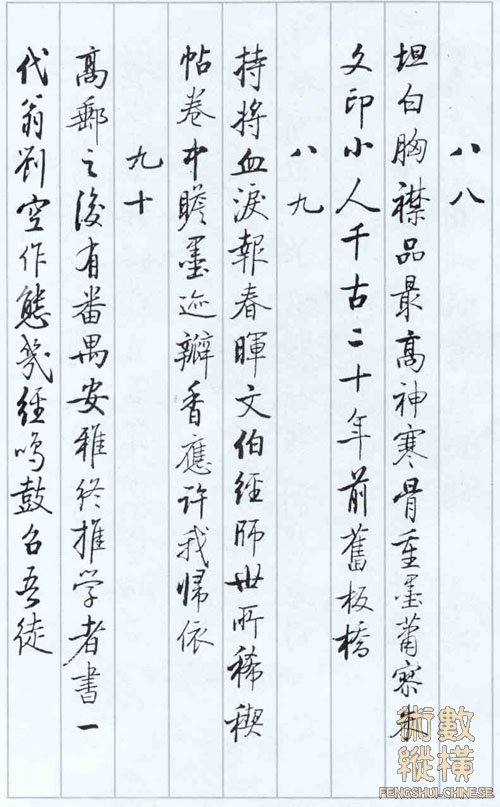 八八
坦白胸襟品最高神寒骨重墨蕭寥朱
文印小人千古二十年前舊板橋
八九
持將血淚報春暉文伯經師世所稀禊
帖卷中瞻墨迹瓣香應許我歸依
九十
高郵之後有番禺安雅終推学者書一
代翁劉空作態幾經鳴鼓召吾徒
數術
橫縱
FENGSHUI-CHINESE